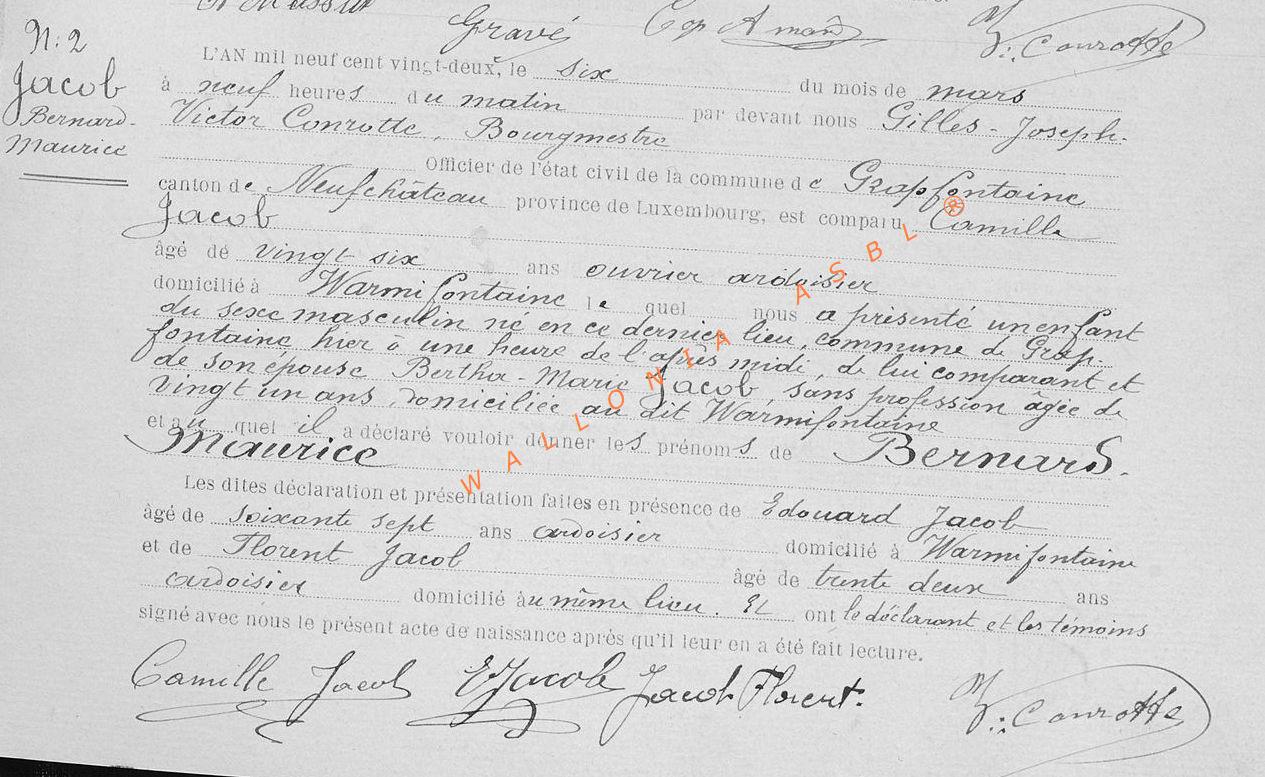 Gravé Cop Amand V. Conrotte
N: 2
Jacob
Bernard-
Maurice
L'AN mil neuf cent vingt-deux, le six du mois de mars
à neuf heures du matin par devant nous Gilles-Joseph-
Victor Conrotte, Bourgmestre
Officier de l'état civil de la commune de Grapfontaine
canton de Neufchâteau province de Luxembourg, est comparu Camille
Jacob
âgé de vingt six ans ouvrier ardoisier
domicilié à Warmifontaine lequel nous a présenté un enfant
du sexe masculin né en ce dernier lieu, commune de Grap-
fontaine hier à une heure de l'après midi, de lui comparant et
de son épouse Bertha-Marie Jacob, sans profession âgée de
vingt un ans, domiciliée au dit Warmifontaine
et au quel il a déclaré vouloir donner les prénoms de Bernard-
Maurice
Les dites déclaration et présentation faites en présence de Edouard Jacob
âgé de soixante sept ans ardoisier domicilié à Warmifontaine
et de Florent Jacob âgé de trente deux ans
ardoisier domicilié au même lieu. Et ont le déclarant et les témoins
signé avec nous le présent acte de naissance après qu'il leur en a été fait lecture.
Camille Jacob E Jacob Jacob Florent. V. Conrotte
WALLONIA ASBL ®